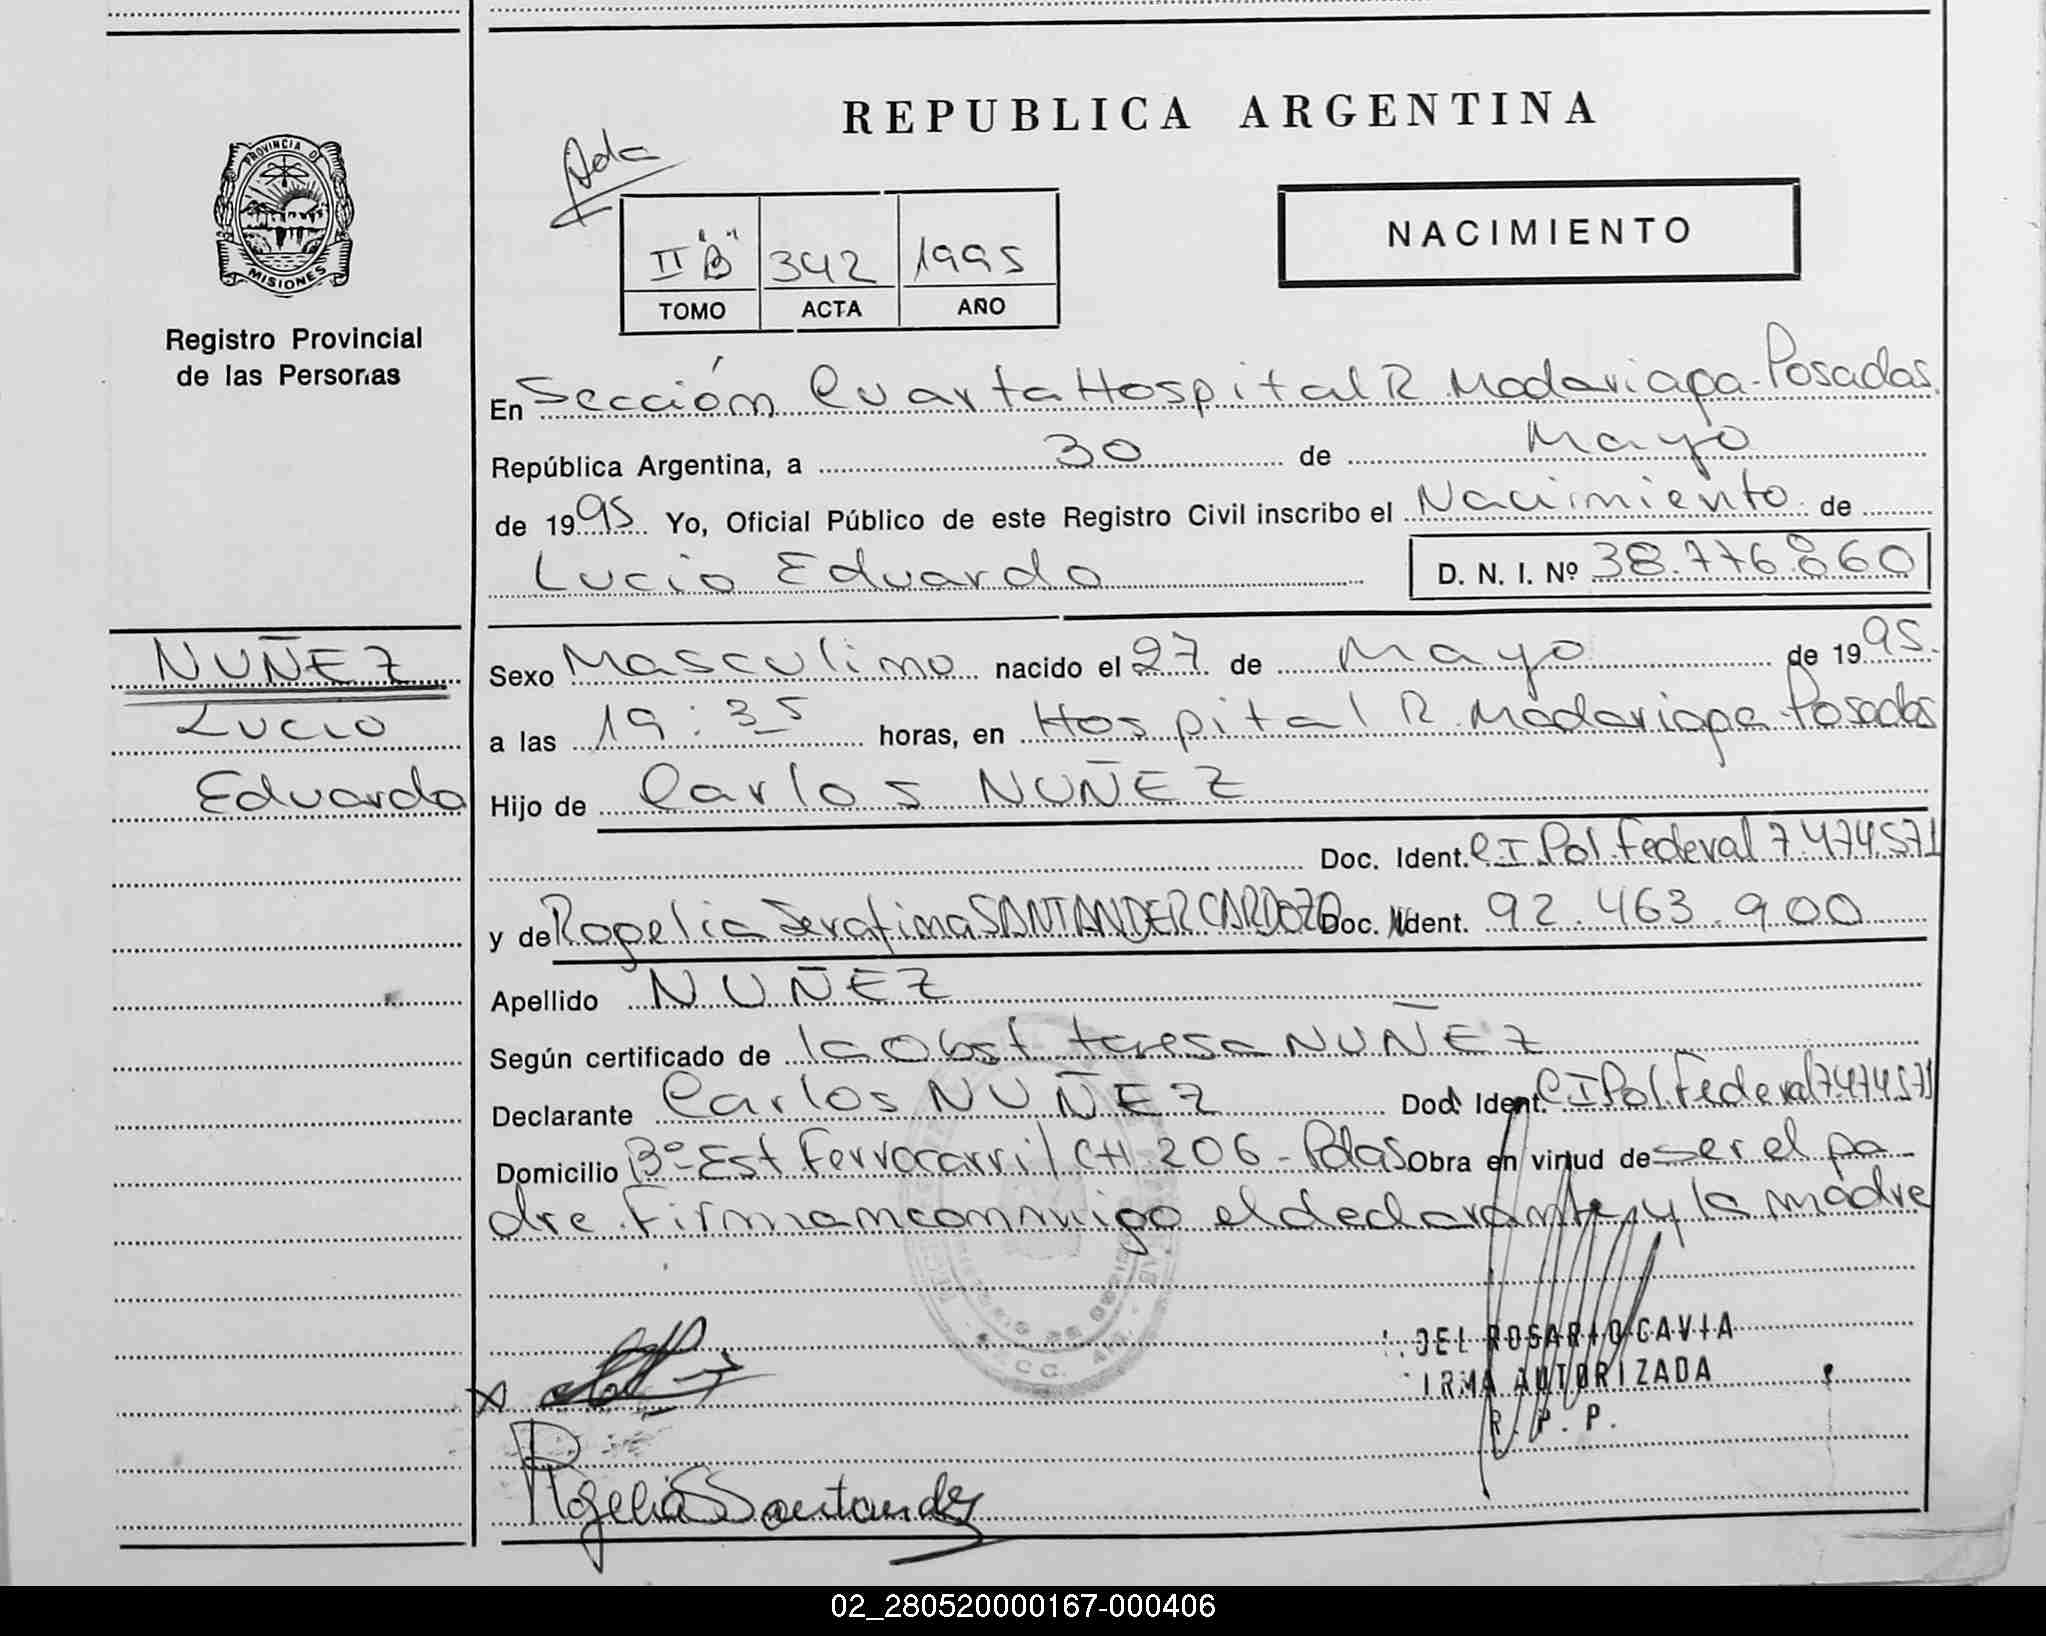 REPUBLICA ARGENTINA
Ada
PROVINCIA DE
MISIONES
II "B" 342 1995
TOMO ACTA AÑO
NACIMIENTO
Registro Provincial
de las Personas
En Sección Cuarta Hospital R. Madariaga - Posadas.
República Argentina, a 30 de Mayo
de 1995 Yo, Oficial Público de este Registro Civil inscribo el Nacimiento de
Lucio Eduardo D. N. I. Nº 38.776.860
NUÑEZ
Lucio
Eduardo
Sexo Masculino nacido el 27 de Mayo de 1995.
a las 19:35 horas, en Hospital R. Madariaga - Posadas
Hijo de Carlos NUÑEZ
Doc. Ident. C.I. Pol. Federal 7.474.571
y de Rogelia Serafina SANTANDER CARDOZO Doc. Ident. 92.463.900
Apellido NUÑEZ
Según certificado de la Obst. teresa NUÑEZ
Declarante Carlos NUÑEZ Doc. Ident. C I Pol. Federal 7.474.571
Domicilio Bº - Est Ferrocarril CH 206 - Pdas Obra en virtud de ser el pa-
dre. Firman conmigo el declarante y la madre
DEL ROSARIO CAVIA
IRMA AUTORIZADA
R. P. P.
x
Rogelia Santander
02_280520000167-000406